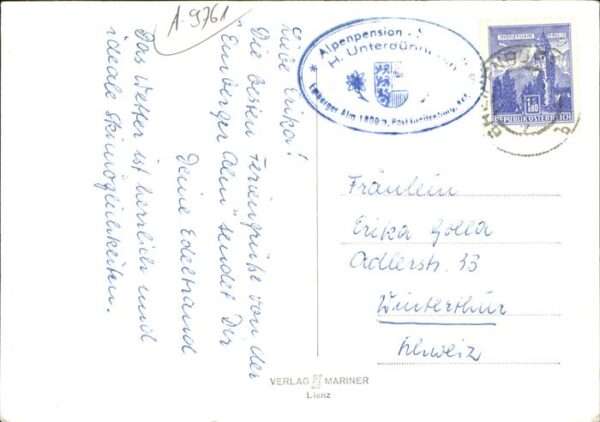 A-9761
Liebe Erika!
Die besten Feriengrüße von der
"Emberger Alm" sendet Dir
Deine Edeltraud
Das Wetter ist herrlich und
ideale Skimöglichkeiten.
Alpenpension
H. Untergünt
Emberger Alm 1800 m, Post
REPUBLIK ÖSTERREICH
Fräulein
Erika Golla
Adlerstr. 33
Winterthur
Schweiz
VERLAG MARINER
Lienz